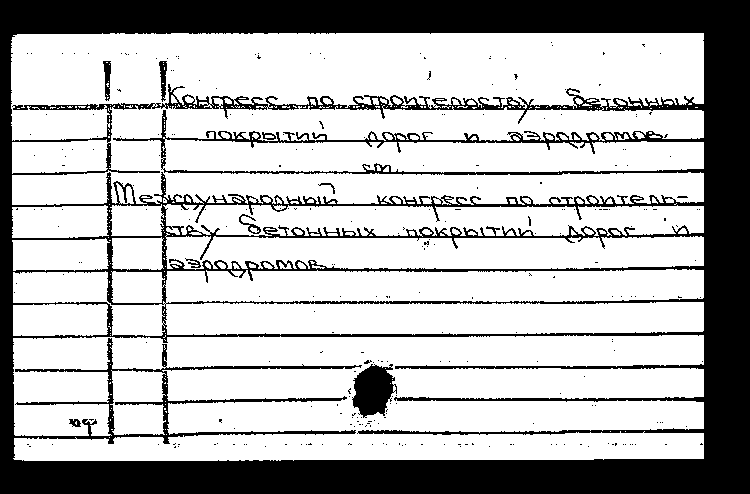 Конгресс по строительству бетонных
покрытий дорог и аэродромов.
см.
Международный конгресс по строитель-
ству бетонных покрытий дорог и
аэродромов.